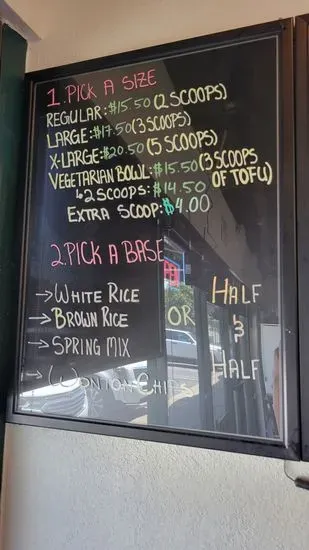 1. PICK A SIZE
REGULAR: $15.50 (2 SCOOPS)
LARGE: $17.50 (3 SCOOPS)
X-LARGE: $20.50 (5 SCOOPS)
VEGETARIAN BOWL: $15.50 (3 SCOOPS OF TOFU)
↳2 SCOOPS: $14.50
EXTRA SCOOP: $4.00
2. PICK A BASE
→ WHITE RICE
→ BROWN RICE
→ SPRING MIX
→ WONTON CHIPS
OR
HALF
&
HALF